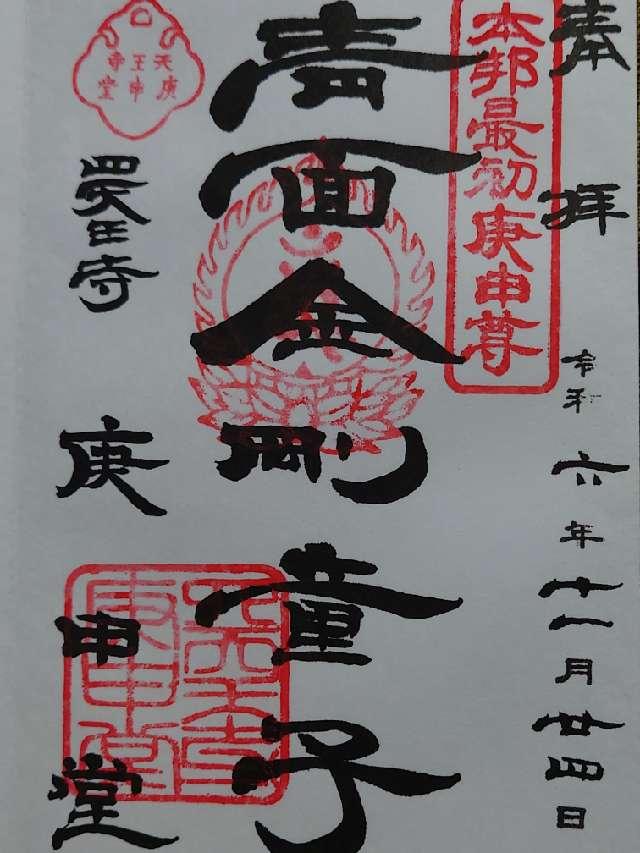 奉拝
令和六年十一月廿四日
本邦最初庚申尊
青面金剛童子
天庚
王申
寺堂
四天王寺
庚申堂
四天王寺
庚申堂